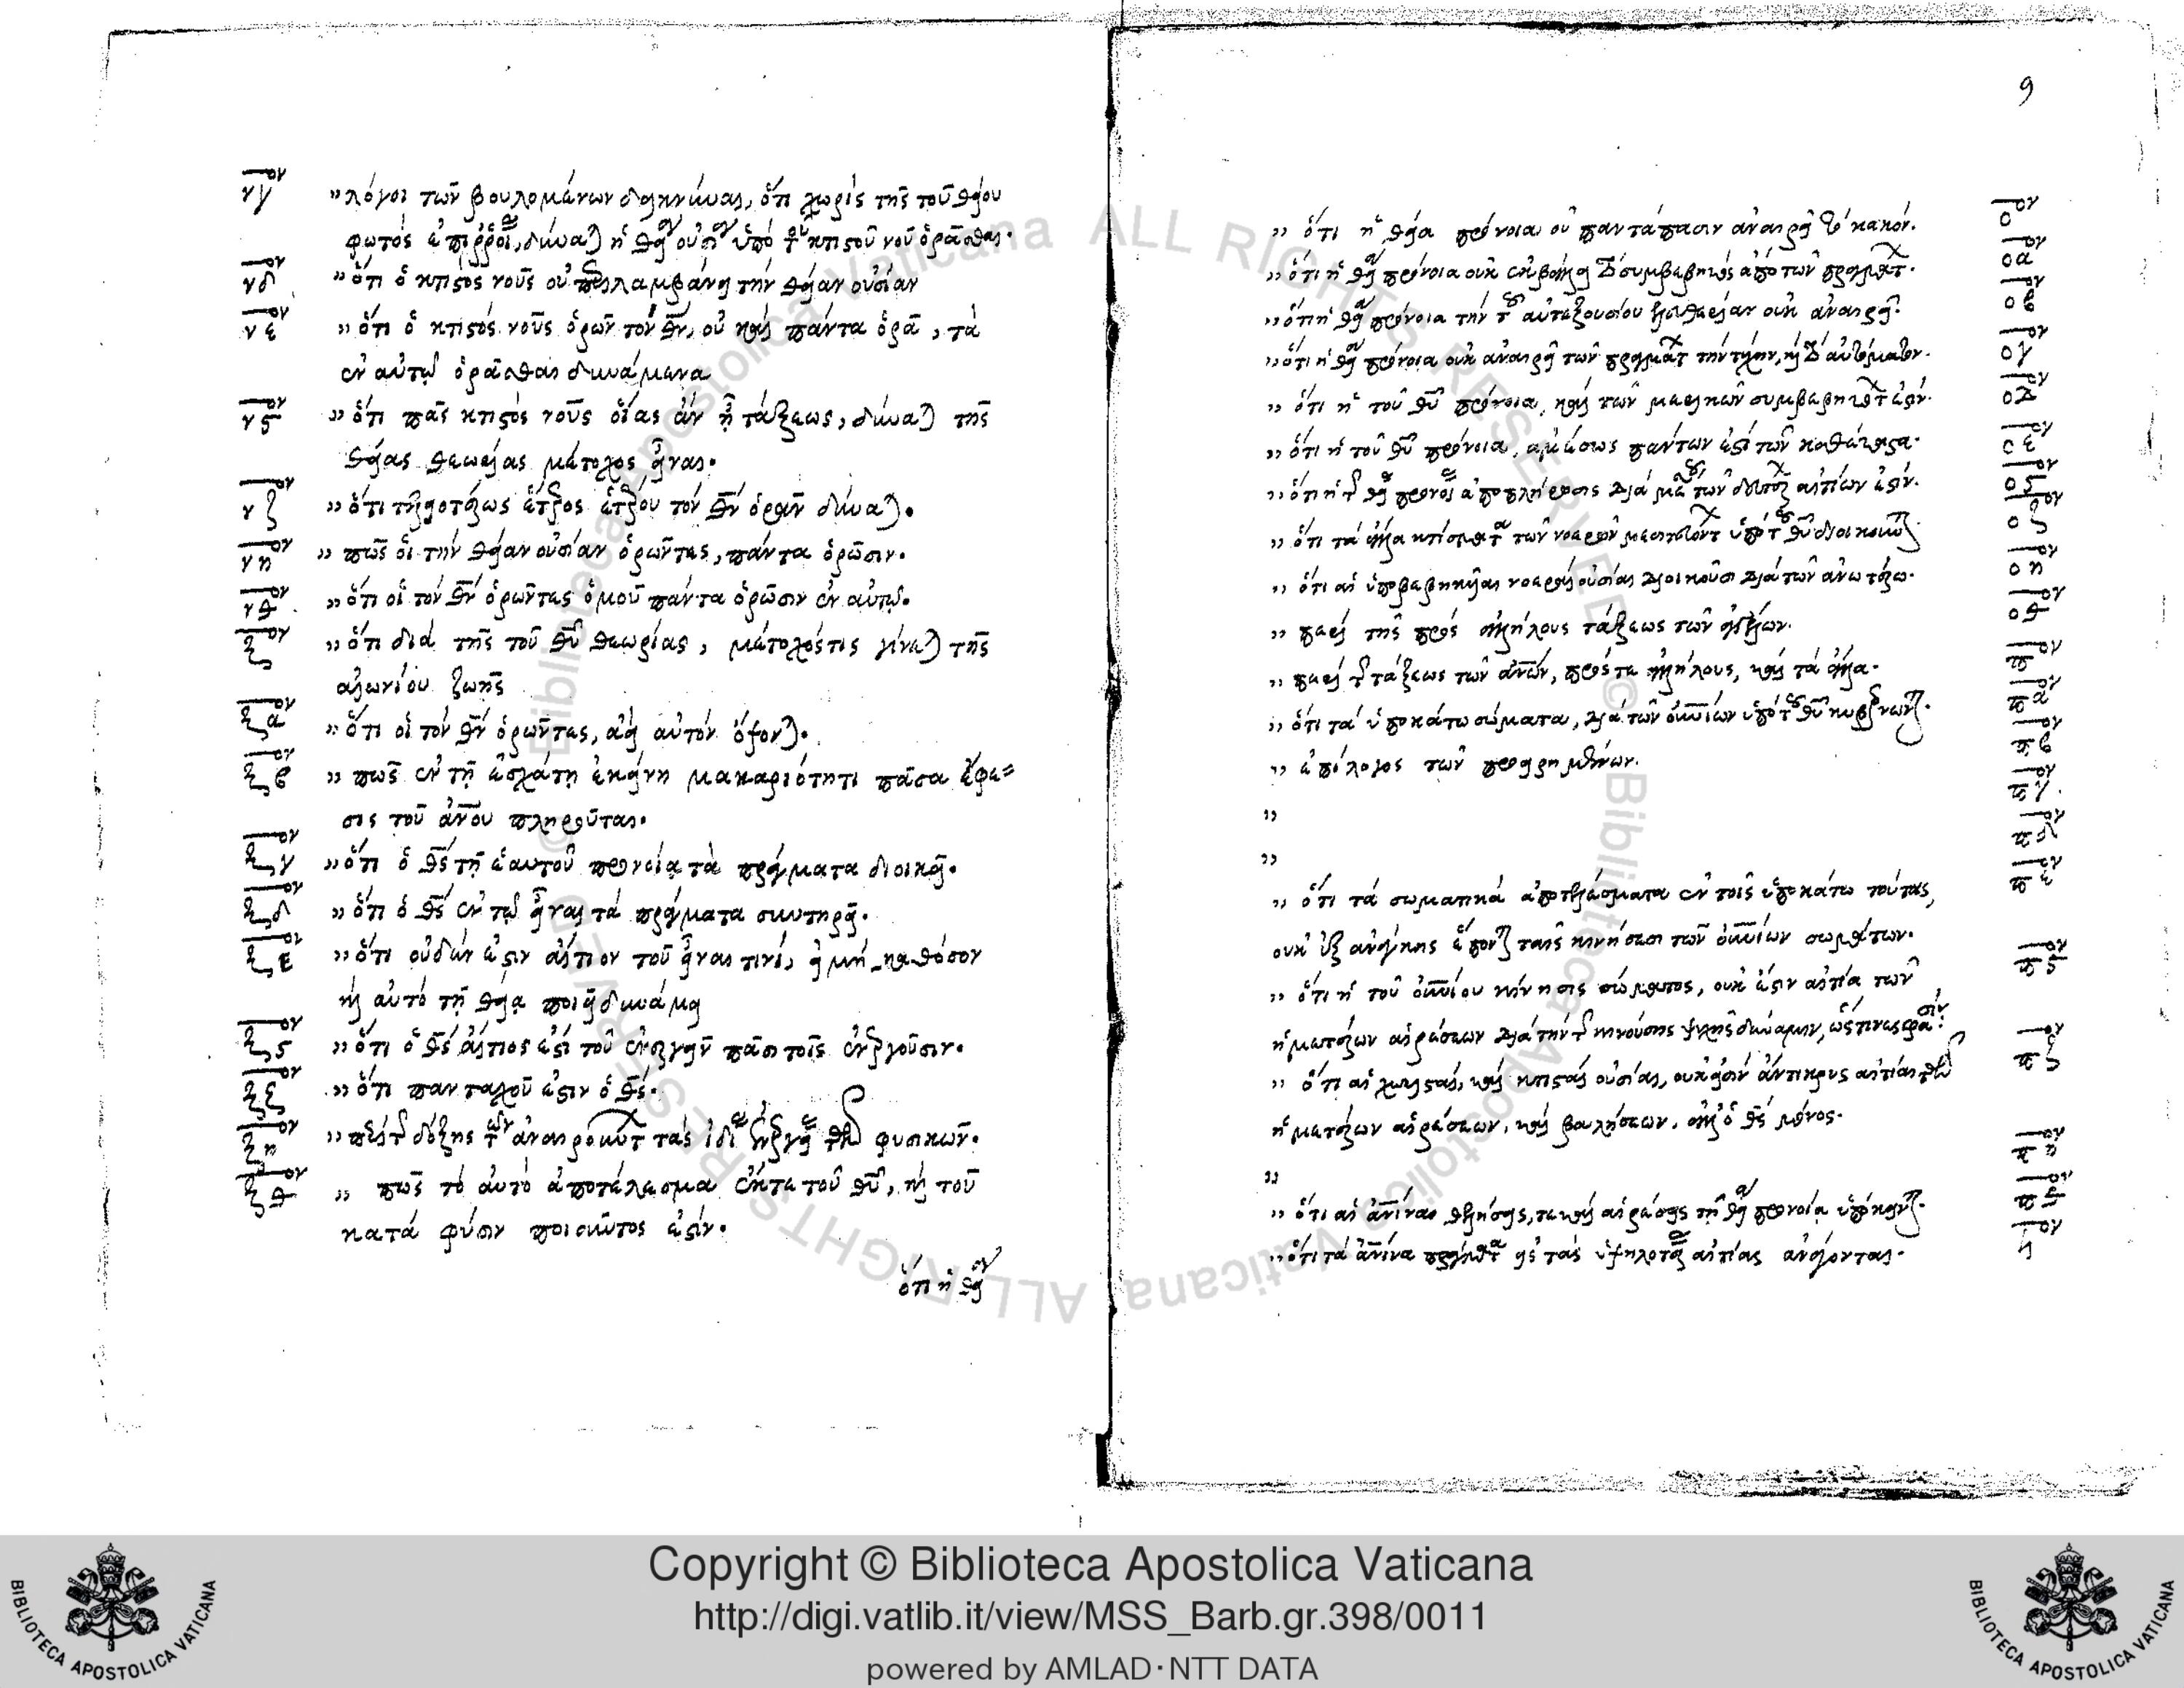 νγον ,, λόγοι τῶν βουλομένων δεικνύναι, ὅτι χωρὶς τῆς τοῦ θείου
φωτὸς ἐπιρροίας, δύναται ἡ θεία οὐσία ὑπὸ τοῦ κτιστοῦ νοῦ ὁρᾶσθαι.
νδον ,, ὅτι ὁ κτιστὸς νοῦς οὐ περιλαμβάνει τὴν θείαν οὐσίαν
νεον ,, ὅτι ὁ κτιστὸς νοῦς ὁρῶν τὸν θν, οὐ καὶ πάντα ὁρᾶ, τὰ
ἐν αὐτῷ ὁρᾶσθαι δυνάμενα
νςον ,, ὅτι πᾶς κτιστὸς νοῦς οἵας ἂν ᾖ τάξεως, δύναται τῆς
θείας θεωρίας μέτοχος εἶναι.
νζον ,, ὅτι τελειοτέρως ἕτερος ἑτέρου τὸν θν ὁρᾶν δύναται.
νηον ,, πῶς οἱ τὴν θείαν οὐσίαν ὁρῶντες, πάντα ὁρῶσιν.
νθον ,, ὅτι οἱ τὸν θν ὁρῶντες ὁμοῦ πάντα ὁρῶσιν ἐν αὐτῷ.
ξον ,, ὅτι διὰ τῆς τοῦ θυ θεωρίας, μέτοχός τις γίνεται τῆς
αἰωνίου ζωῆς
ξαον ,, ὅτι οἱ τὸν θν ὁρῶντες, ἀεὶ αὐτὸν ὄψονται.
ξβον ,, πῶς ἐν τῇ ἐσχάτῃ ἐκείνῃ μακαριότητι πᾶσα ἔφε=
σις τοῦ ἀνου πληροῦται.
ξγον ,, ὅτι ὁ θς τῇ ἑαυτοῦ προνοίᾳ τὰ πράγματα διοικεῖ.
ξδον ,, ὅτι ὁ θς ἐν τῷ εἶναι τὰ πράγματα συντηρεῖ.
ξεον ,, ὅτι οὐδέν ἐστιν αἴτιον τοῦ εἶναί τινι, εἰ μὴ καθόσον
καὶ αὐτὸ τῇ θείᾳ ποιεῖ δυνάμει
ξςον ,, ὅτι ὁ θς αἴτιός ἐστι τοῦ ἐνεργεῖν πᾶσι τοῖς ἐνεργοῦσιν.
ξζον ,, ὅτι πανταχοῦ ἐστιν ὁ θς.
ξηον ,, περὶ τῆς δόξης τῶν ἀναιρούντων τὰς ἰδίας ἐνεργείας τῶν φυσικῶν.
ξθον ,, πῶς τὸ αὐτὸ ἀποτέλεσμα ἔκ τε τοῦ θυ, καὶ τοῦ
κατὰ φύσιν ποιοῦντός ἐστιν.
ὅτι ἡ θεία
9
,, ὅτι ἡ θεία πρόνοια οὐ παντάπασιν ἀναιρεῖ τὸ κακόν. οον
,, ὅτι ἡ θεία πρόνοια οὐκ ἐκβάλλει τὸ συμβεβηκὸς ἀπὸ τῶν πραγμάτων. οαον
,, ὅτι ἡ θεία πρόνοια τὴν τοῦ αὐτεξουσίου ἐλευθερίαν οὐκ ἀναιρεῖ. οβον
,, ὅτι ἡ θεία πρόνοια οὐκ ἀναιρεῖ τῶν πραγμάτων τὴν τύχην, καὶ τὸ αὐτόματον. ογον
,, ὅτι ἡ τοῦ θυ πρόνοια, καὶ τῶν μερικῶν συμβεβηκότων ἐστίν. οδον
,, ὅτι ἡ τοῦ θυ πρόνοια, ἀμέσως πάντων ἐστὶ τῶν καθέκαστα. οεον
,, ὅτι ἡ τῆς θείας προνοίας ἀποπλήρωσις διὰ μέσου τῶν δευτέρων αἰτίων ἐστίν. οςον
,, ὅτι τὰ ἄλλα κτίσματα τῶν νοερῶν μεσιτευόντων ὑπὸ τοῦ θυ διοικοῦνται. οζον
,, ὅτι αἱ ὑποβεβηκυῖαι νοεραὶ οὐσίαι διοικοῦσι διὰ τῶν ἀνωτέρω. οηον
,, περὶ τῆς πρὸς ἀλλήλους τάξεως τῶν ἀγγέλων. οθον
,, περὶ τῆς τάξεως τῶν ἀνων, πρός τε ἀλλήλους, καὶ τὰ ἄλλα. πον
,, ὅτι τὰ ὑποκάτω σώματα, διὰ τῶν οὐνίων ὑπὸ τοῦ θυ κυβερνῶνται. παον
,, ἐπίλογος τῶν προειρημένων. πβον
,, πγον
,, πδον
,, ὅτι τὰ σωματικὰ ἀποτελέσματα ἐν τοῖς ὑποκάτω τούτοις, πεον
οὐκ ἐξ ἀνάγκης ἕπονται ταῖς κινήσεσι τῶν οὐνίων σωμάτων.
,, ὅτι ἡ τοῦ οὐνίου κίνησις σώματος, οὐκ ἔστιν αἰτία τῶν πςον
ἡμετέρων αἱρέσεων διὰ τὴν τῆς κινούσης ψυχῆς δύναμιν, ὥς τινες φασίν:
,, ὅτι αἱ χωρισταί, καὶ κτισταὶ οὐσίαι, οὐκ εἰσὶν ἄντικρυς αἰτίαι τῶν πζον
ἡμετέρων αἱρέσεων, καὶ βουλήσεων, ἀλλ' ὁ θς μόνος.
,, πηον
,, ὅτι αἱ ἀνιναι θελήσεις, τε καὶ αἱρέσεις τῇ θείᾳ προνοίᾳ ὑπόκεινται. πθον
,, ὅτι τὰ ἀνινα πράγματα εἰς τὰς ὑψηλοτέρας αἰτίας ἀνάγονται. ϟον
Copyright © Biblioteca Apostolica Vaticana
http://digi.vatlib.it/view/MSS_Barb.gr.398/0011
powered by AMLAD·NTT DATA
BIBLIOTECA APOSTOLICA VATICANA
BIBLIOTECA APOSTOLICA VATICANA
© Biblioteca Apostolica Vaticana ALL RIGHTS RESERVED
© Biblioteca Apostolica Vaticana ALL RIGHTS RESERVED